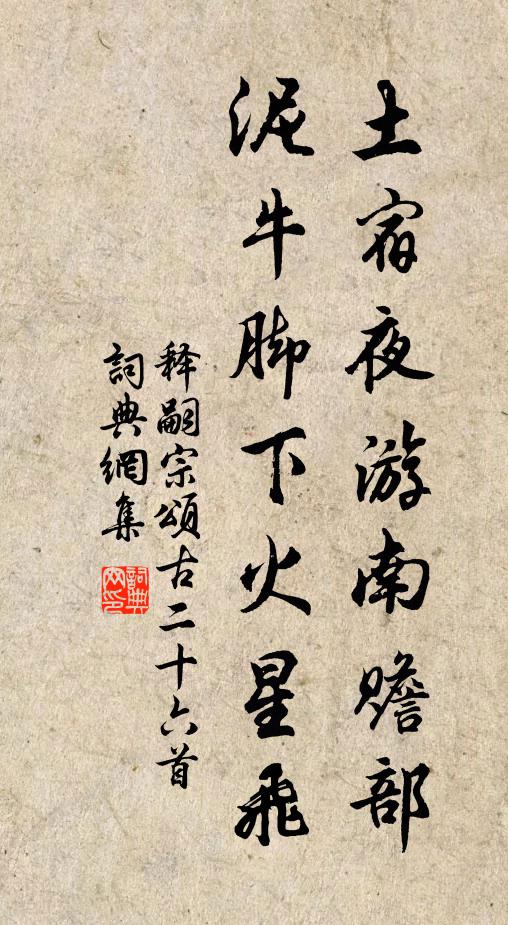 土宿夜游南贍部
泥牛脚下火星飛
释嗣宗頌古二十六首
詞典網集
詞典網印